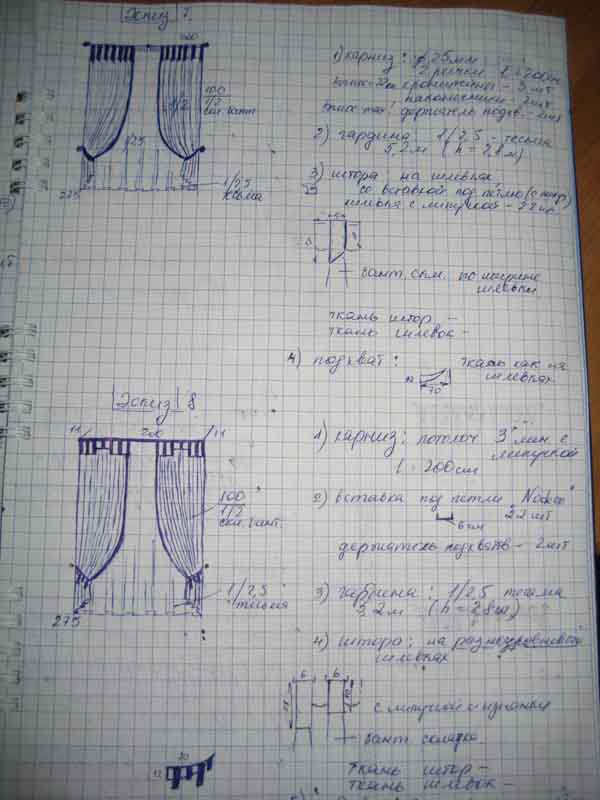 Эскиз 7
200
100
1/2
1/2
1/2,5
1/2,5
тесьма
275
1) карниз: ø 25мм
кронштейны - 3 шт
наконечники - 2 шт
держатель подхв. - 2 шт
2) гардина 1/2,5 - тесьма
5,2 м (h = 2,8 м)
3) штора на шлевках
со вставкой под петлю
с липучкой - 22 шт
бант. скл. по ширине
шлевки
ткань штор -
ткань шлевок -
4) подхват:
70
ткань как на
шлевках
Эскиз 8
11
200
11
100
1/2
1/2,5
тесьма
275
1) карниз: потолоч 3 лин. с
липучкой
l: 200см
2) вставка под петли
6 см
22 шт
держатель подхватов - 2 шт
3) гардина: 1/2,5 тесьма
5,2 м (h = 2,8 м)
4) штора: на разноуровневой
шлевках
6
6
с липучкой с изнанки
бант. складка
ткань штор -
ткань шлевок -
70
12